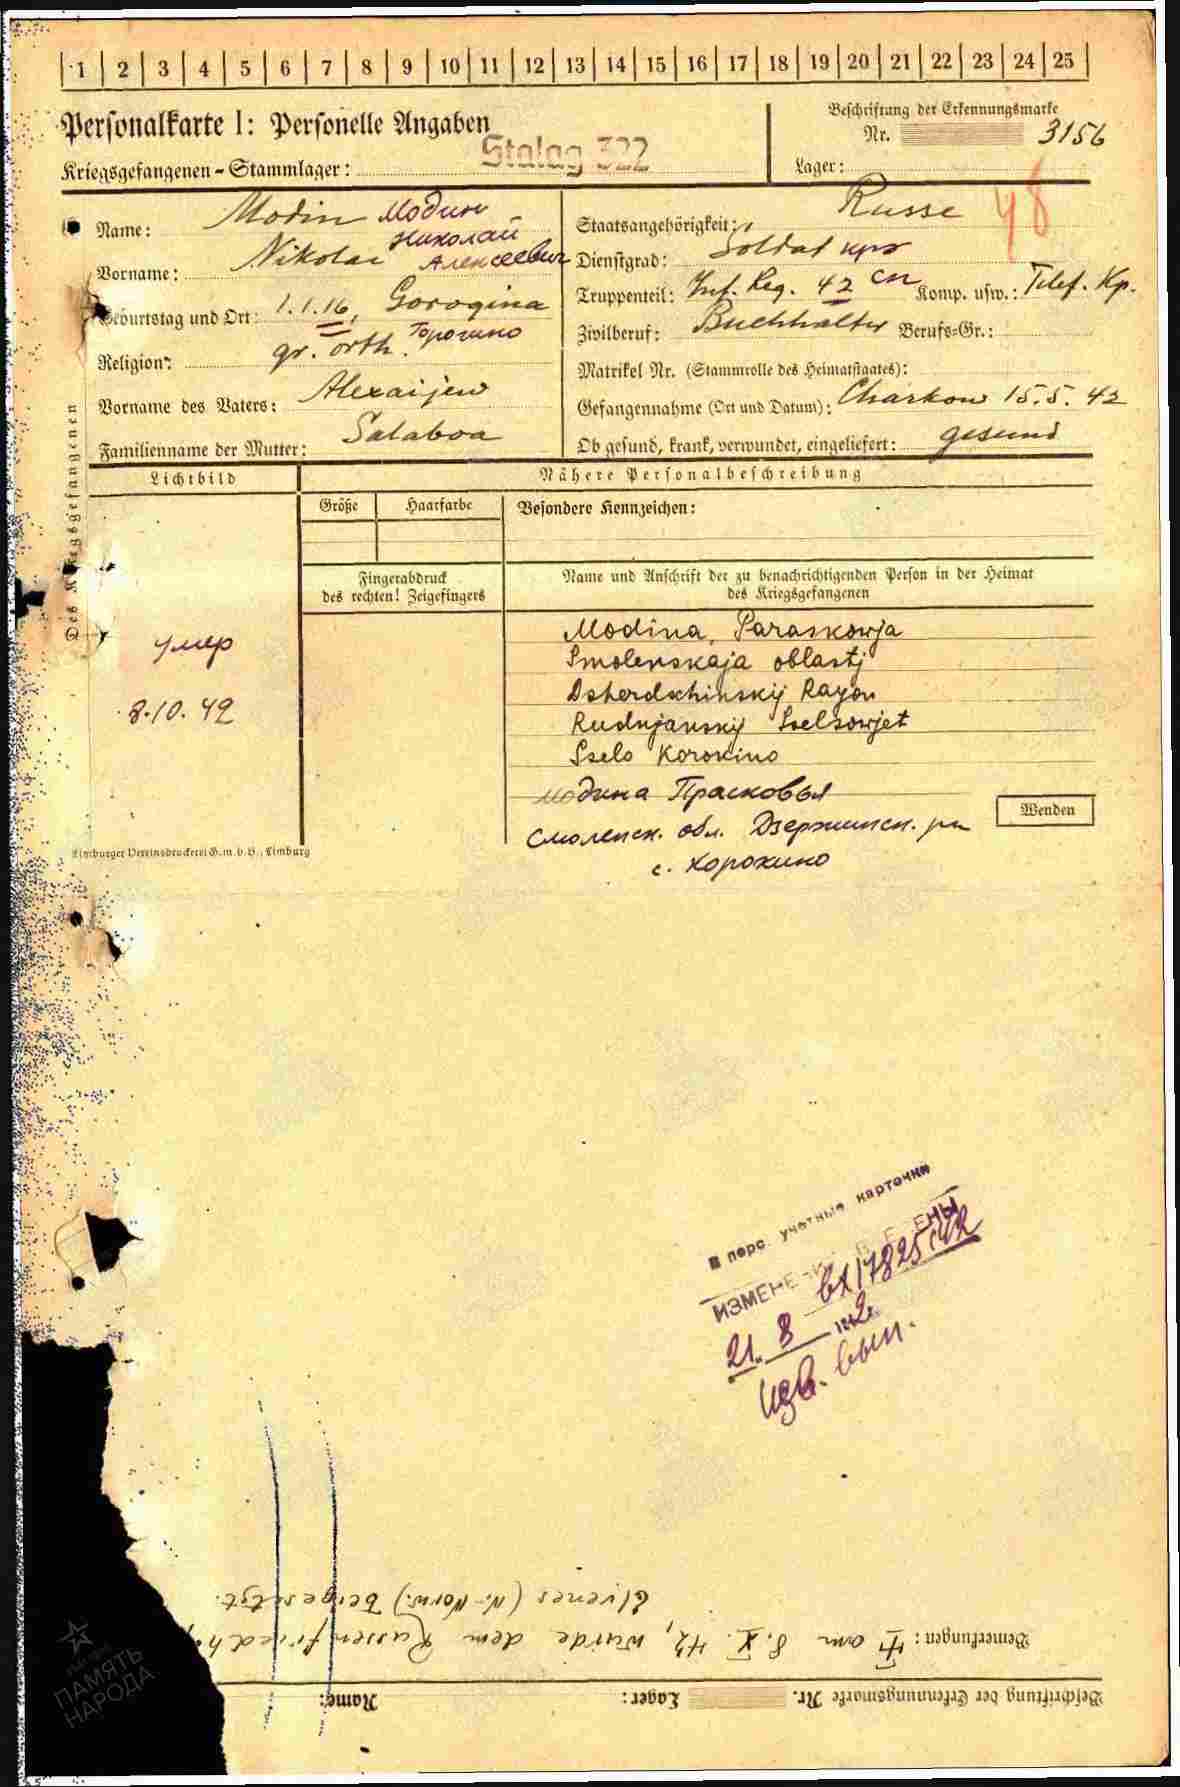 1 | 2 | 3 | 4 | 5 | 6 | 7 | 8 | 9 | 10 | 11 | 12 | 13 | 14 | 15 | 16 | 17 | 18 | 19 | 20 | 21 | 22 | 23 | 24 | 25
Personalkarte I: Personelle Angaben
Kriegsgefangenen-Stammlager: Stalag 322
Beschriftung der Erkennungsmarke
Nr. 3156
Lager:
48
Name: Modin Модин
Николай
Vorname: Nikolai Алексеевич
Geburtstag und Ort: 1.1.16, Gorogina
Горогино
Religion: gr. orth.
Vorname des Vaters: Alexaijew
Familienname der Mutter: Salaboa
Staatsangehörigkeit: Russe
Dienstgrad: Soldat крз
Truppenteil: Inf. Reg. 42 сп Komp. usw.: Telef. Kp.
Zivilberuf: Buchhalter Berufs-Gr.:
Matrikel Nr. (Stammrolle des Heimatstaates):
Gefangennahme (Ort und Datum): Charkow 15.5.42
Ob gesund, krank, verwundet, eingeliefert: gesund
Des Kriegsgefangenen
Lichtbild
умер
8.10.42
Nähere Personalbeschreibung
Größe
Haarfarbe
Besondere Kennzeichen:
Fingerabdruck
des rechten! Zeigefingers
Name und Anschrift der zu benachrichtigenden Person in der Heimat
des Kriegsgefangenen
Modina, Paraskowja
Smolenskaja oblastj
Dsherdschinskij Rayon
Rudnjanskij Sselsowjet
Sselo Korokino
Модина Прасковья
Смоленск. обл. Дзержинск. рн
с. Хорохино
Wenden
Limburger Vereinsdruckerei G.m.b.H., Limburg
В перс. учетные карточки
ИЗМЕНЕНИ ЕНЫ
вх 17825
21. 8
изв. вып.
Beschriftung der Erkennungsmarke Nr. Lager: Name:
Bemerkungen: am 8. X. 42, wurde dem Russenfriedh
Elvenes (N. Norw.) beigesetzt.
ПАМЯТЬ
НАРОДА